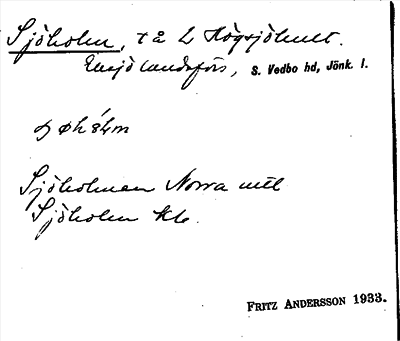 Sjöholm, t å L Högsjöhult.
Eksjö landsförs, S. Vedbo hd, Jönk. l.
Sjöholmen Norra utl
Sjöholm kb.
FRITZ ANDERSSON 1933.